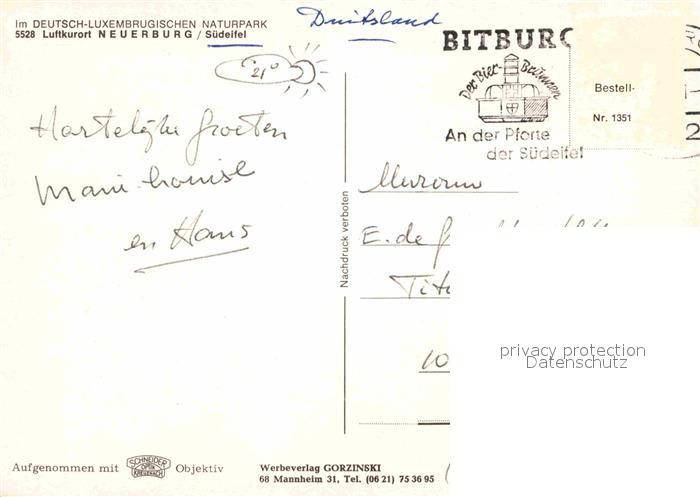 Im DEUTSCH-LUXEMBRUGISCHEN NATURPARK
5528 Luftkurort NEUERBURG / Südeifel
Duitsland
21°
BITBURG
Der Bier-Brunnen
An der Pforte
der Südeifel
Bestell-
Nr. 1351
Hartelijke Groeten
Marie-Louise
en Hans
Nachdruck verboten
E. de
privacy protection
Datenschutz
Aufgenommen mit SCHNEIDER OPTIK KREUZNACH Objektiv
Werbeverlag GORZINSKI
68 Mannheim 31, Tel. (06 21) 75 36 95